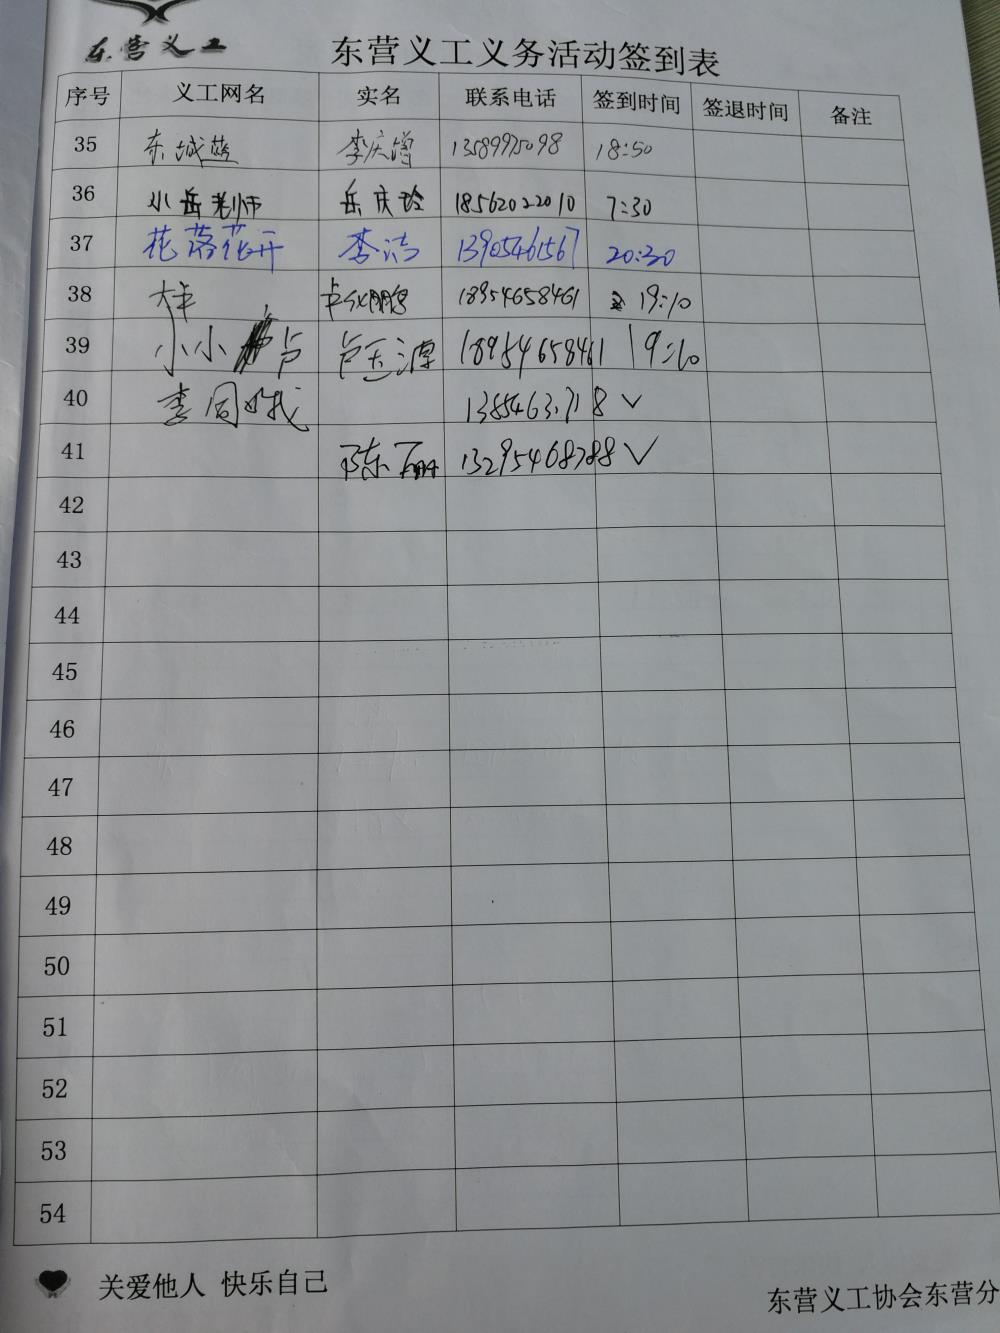 东营义工
东营义工义务活动签到表
序号 义工网名 实名 联系电话 签到时间 签退时间 备注
35 东城 李庆增 13589975098 18:50
36 小岳老师 岳庆玲 18562022010 7:30
37 花落花开 李洁 13905461567 20:30
38 大卢 18954658461 19:10
39 小小卢 卢玉源 18954658461 19:10
40 李同
41 陈丽 13295468788 ✓
42
43
44
45
46
47
48
49
50
51
52
53
54
关爱他人 快乐自己
东营义工协会东营分